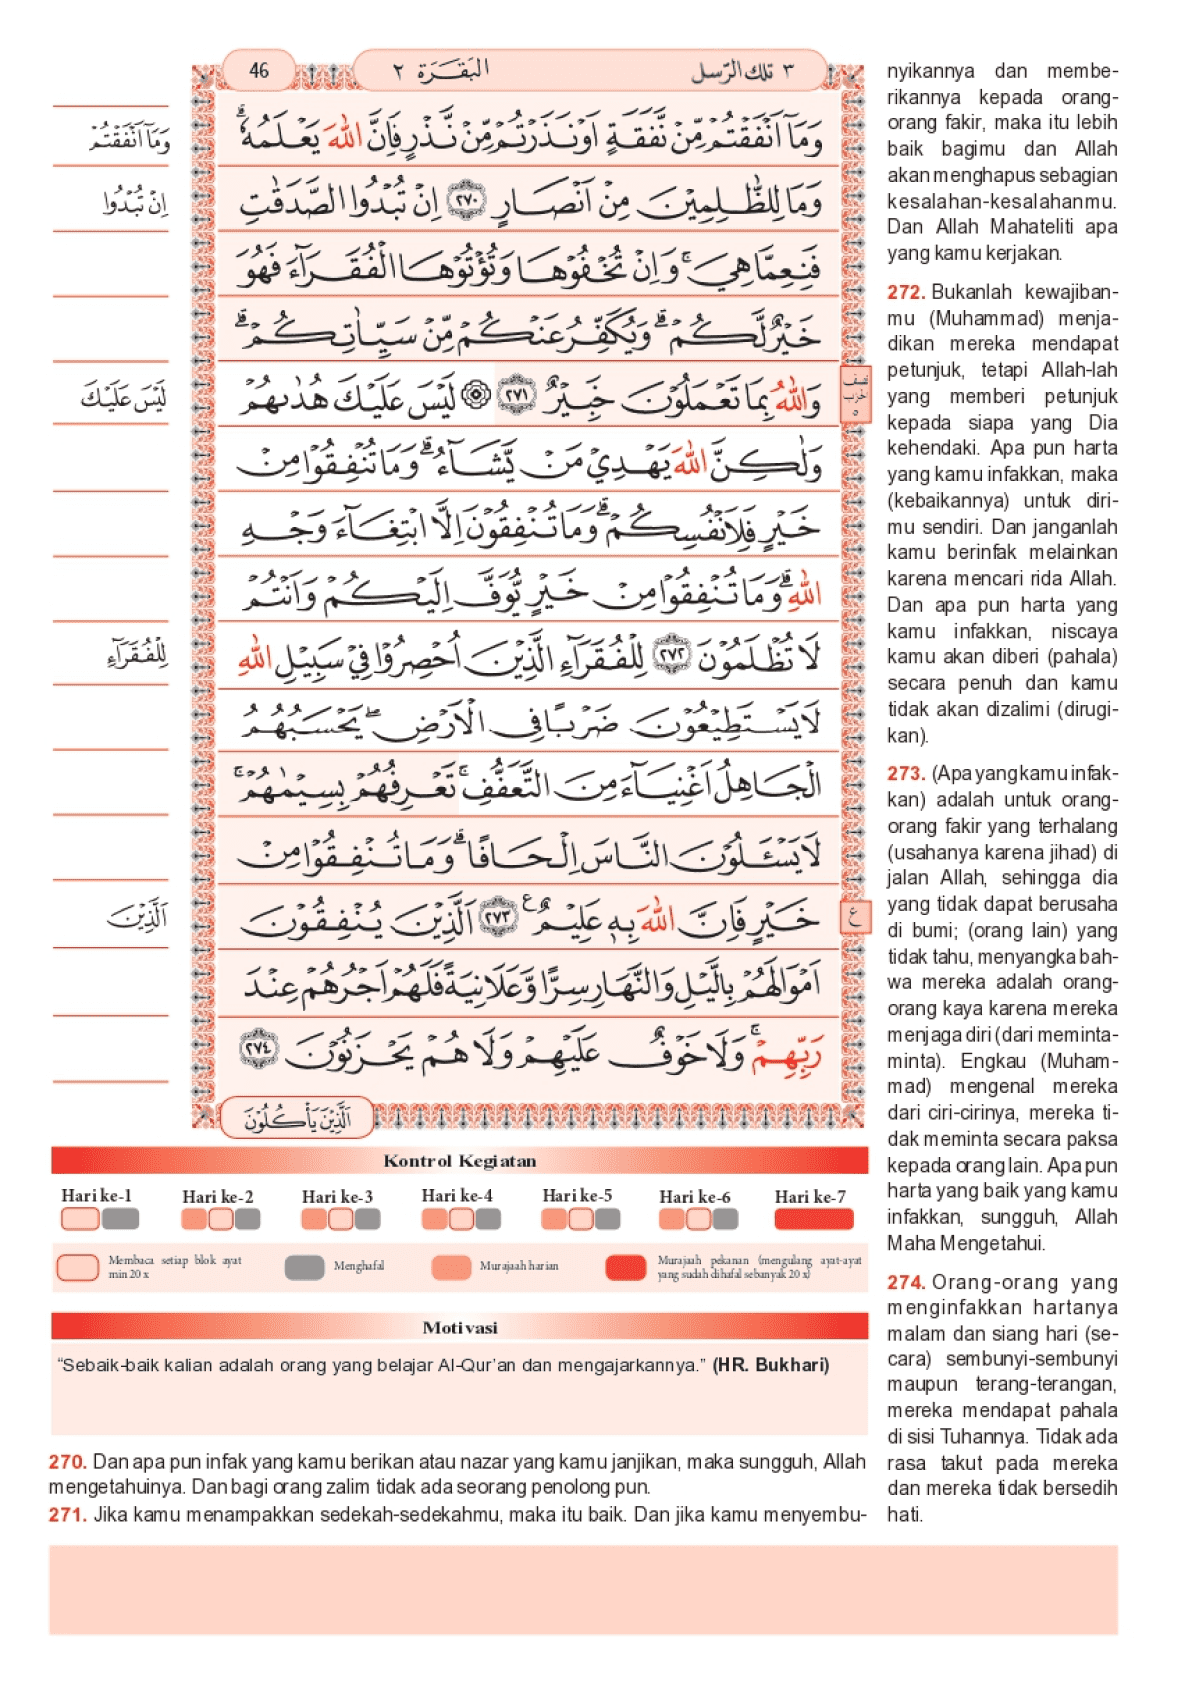 46
البَقَرَة ٢
٣ تلك الرّسل
وَمَآ اَنْفَقْتُمْ
اِنْ تُبْدُوا
لَيْسَ عَلَيْكَ
لِلْفُقَرَآءِ
اَلَّذِيْنَ
وَمَآ اَنْفَقْتُمْ مِّنْ نَّفَقَةٍ اَوْ نَذَرْتُمْ مِّنْ نَّذْرٍ فَاِنَّ اللّٰهَ يَعْلَمُهٗ ۗ
وَمَا لِلظّٰلِمِيْنَ مِنْ اَنْصَارٍ ٢٧٠ اِنْ تُبْدُوا الصَّدَقٰتِ
فَنِعِمَّا هِيَ ۚ وَاِنْ تُخْفُوْهَا وَتُؤْتُوْهَا الْفُقَرَآءَ فَهُوَ
خَيْرٌ لَّكُمْ ۗ وَيُكَفِّرُ عَنْكُمْ مِّنْ سَيِّاٰتِكُمْ ۗ
وَاللّٰهُ بِمَا تَعْمَلُوْنَ خَبِيْرٌ ٢٧١ ۞ لَيْسَ عَلَيْكَ هُدٰىهُمْ
وَلٰكِنَّ اللّٰهَ يَهْدِيْ مَنْ يَّشَاۤءُ ۗ وَمَا تُنْفِقُوْا مِنْ
خَيْرٍ فَلِاَنْفُسِكُمْ ۗ وَمَا تُنْفِقُوْنَ اِلَّا ابْتِغَاۤءَ وَجْهِ
اللّٰهِ ۗ وَمَا تُنْفِقُوْا مِنْ خَيْرٍ يُّوَفَّ اِلَيْكُمْ وَاَنْتُمْ
لَا تُظْلَمُوْنَ ٢٧٢ لِلْفُقَرَاۤءِ الَّذِيْنَ اُحْصِرُوْا فِيْ سَبِيْلِ اللّٰهِ
لَا يَسْتَطِيْعُوْنَ ضَرْبًا فِى الْاَرْضِ ۖ يَحْسَبُهُمُ
الْجَاهِلُ اَغْنِيَاۤءَ مِنَ التَّعَفُّفِ ۚ تَعْرِفُهُمْ بِسِيْمٰهُمْ ۚ
لَا يَسْـَٔلُوْنَ النَّاسَ اِلْحَافًا ۗ وَمَا تُنْفِقُوْا مِنْ
خَيْرٍ فَاِنَّ اللّٰهَ بِهٖ عَلِيْمٌ ࣖ ٢٧٣ اَلَّذِيْنَ يُنْفِقُوْنَ
اَمْوَالَهُمْ بِالَّيْلِ وَالنَّهَارِ سِرًّا وَّعَلَانِيَةً فَلَهُمْ اَجْرُهُمْ عِنْدَ
رَبِّهِمْ ۚ وَلَا خَوْفٌ عَلَيْهِمْ وَلَا هُمْ يَحْزَنُوْنَ ٢٧٤
نصف
حزب
٥
ع
اَلَّذِيْنَ يَأْكُلُوْنَ
Kontrol Kegiatan
Hari ke-1 Hari ke-2 Hari ke-3 Hari ke-4 Hari ke-5 Hari ke-6 Hari ke-7
Membaca setiap blok ayat
min 20 x
Menghafal
Murajaah harian
Murajaah pekanan (mengulang ayat-ayat
yang sudah dihafal sebanyak 20 x)
Motivasi
“Sebaik-baik kalian adalah orang yang belajar Al-Qur’an dan mengajarkannya.” (HR. Bukhari)
270. Dan apa pun infak yang kamu berikan atau nazar yang kamu janjikan, maka sungguh, Allah
mengetahuinya. Dan bagi orang zalim tidak ada seorang penolong pun.
271. Jika kamu menampakkan sedekah-sedekahmu, maka itu baik. Dan jika kamu menyembu-
nyikannya dan membe-
rikannya kepada orang-
orang fakir, maka itu lebih
baik bagimu dan Allah
akan menghapus sebagian
kesalahan-kesalahanmu.
Dan Allah Mahateliti apa
yang kamu kerjakan.
272. Bukanlah kewajiban-
mu (Muhammad) menja-
dikan mereka mendapat
petunjuk, tetapi Allah-lah
yang memberi petunjuk
kepada siapa yang Dia
kehendaki. Apa pun harta
yang kamu infakkan, maka
(kebaikannya) untuk diri-
mu sendiri. Dan janganlah
kamu berinfak melainkan
karena mencari rida Allah.
Dan apa pun harta yang
kamu infakkan, niscaya
kamu akan diberi (pahala)
secara penuh dan kamu
tidak akan dizalimi (dirugi-
kan).
273. (Apa yang kamu infak-
kan) adalah untuk orang-
orang fakir yang terhalang
(usahanya karena jihad) di
jalan Allah, sehingga dia
yang tidak dapat berusaha
di bumi; (orang lain) yang
tidak tahu, menyangka bah-
wa mereka adalah orang-
orang kaya karena mereka
menjaga diri (dari meminta-
minta). Engkau (Muham-
mad) mengenal mereka
dari ciri-cirinya, mereka ti-
dak meminta secara paksa
kepada orang lain. Apa pun
harta yang baik yang kamu
infakkan, sungguh, Allah
Maha Mengetahui.
274. Orang-orang yang
menginfakkan hartanya
malam dan siang hari (se-
cara) sembunyi-sembunyi
maupun terang-terangan,
mereka mendapat pahala
di sisi Tuhannya. Tidak ada
rasa takut pada mereka
dan mereka tidak bersedih
hati.